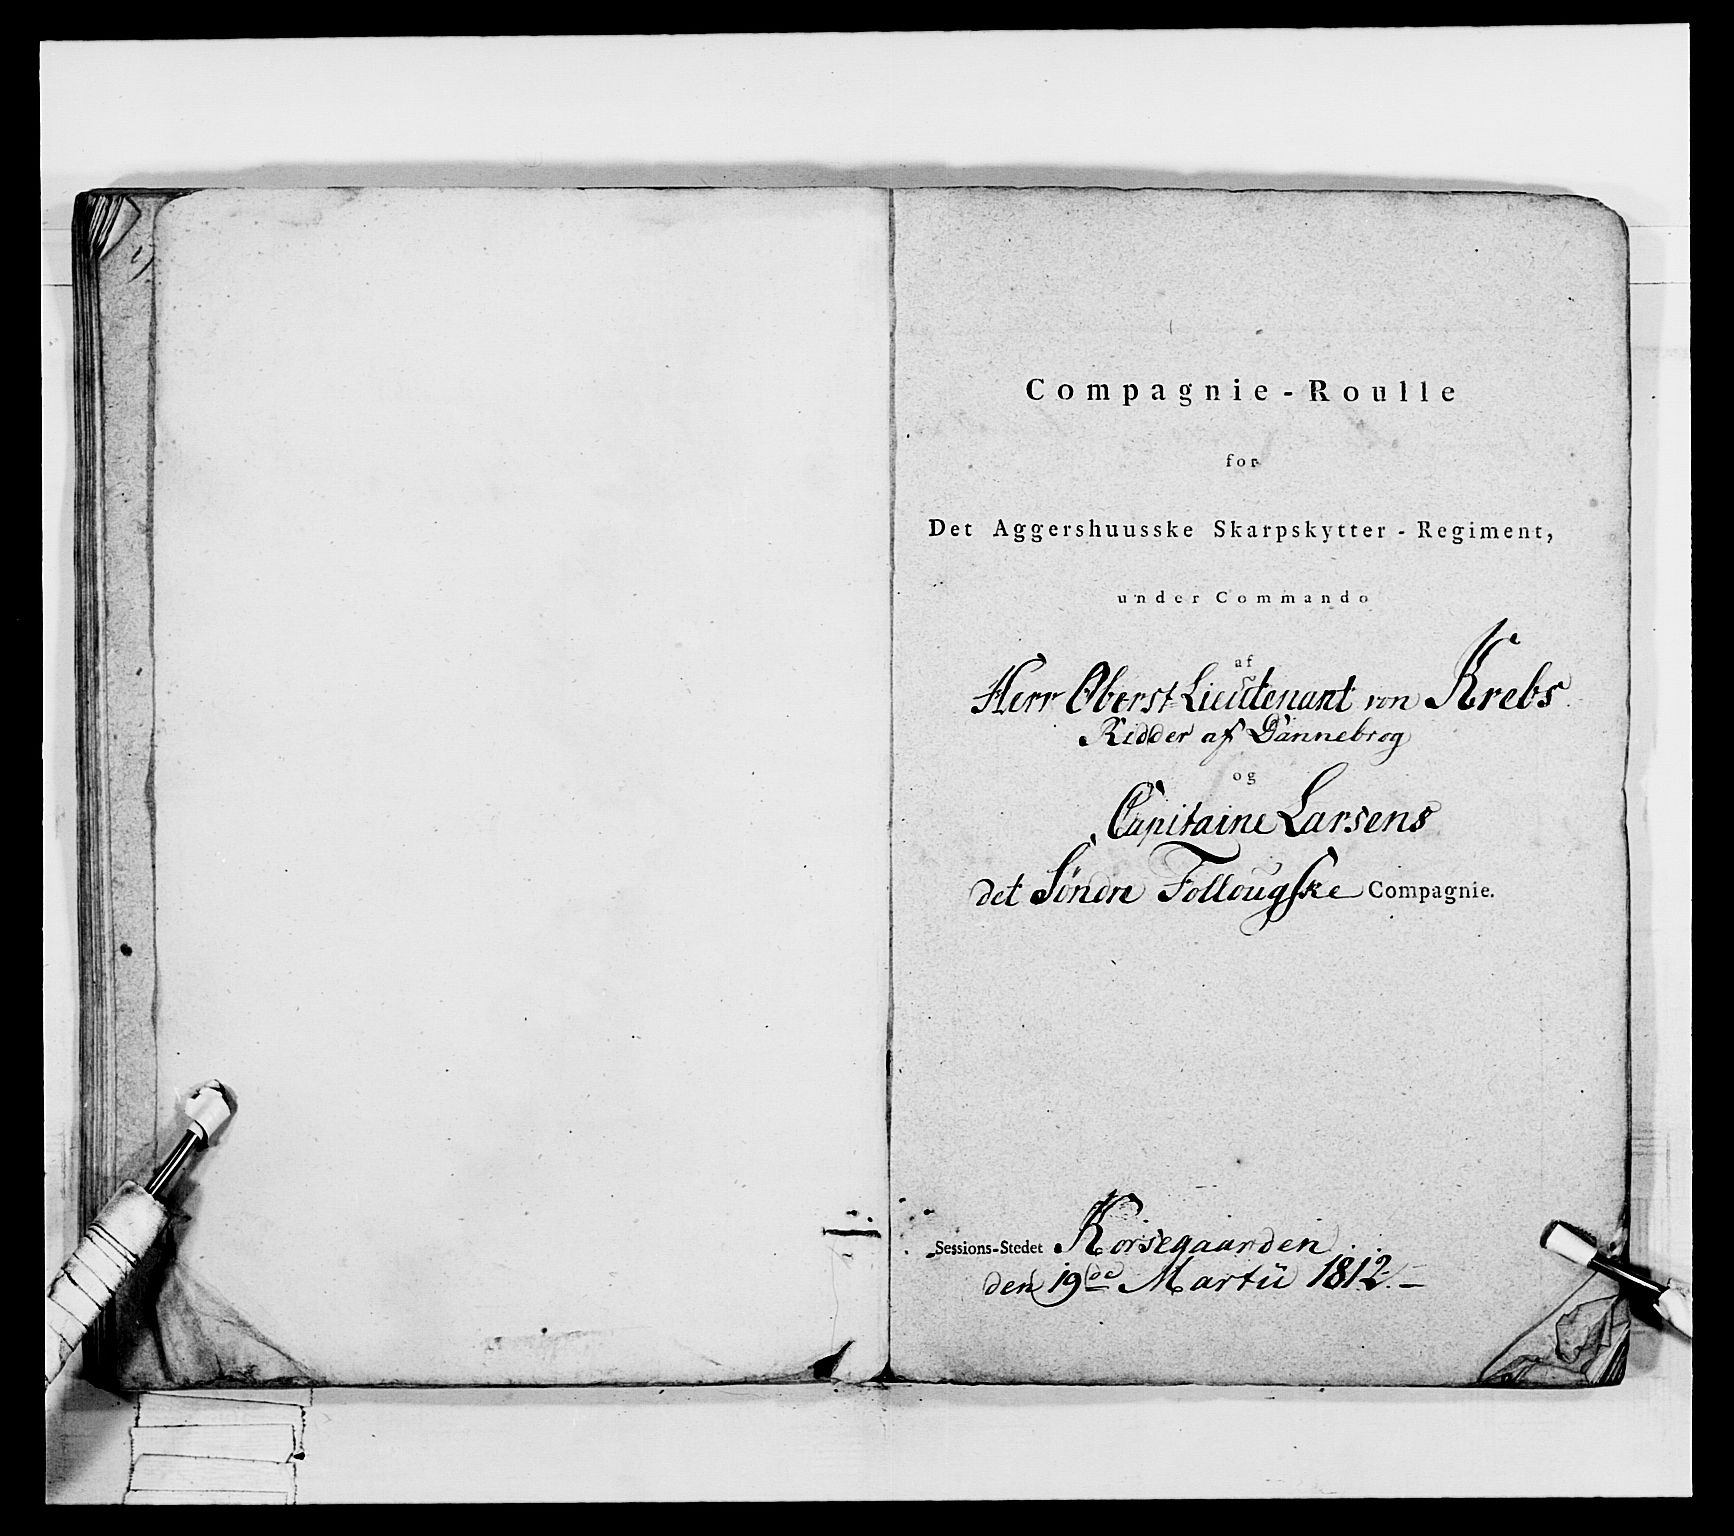 Compagnie-Roulle
for
Det Aggershuusske Skarpskytter-Regiment,
under Commando
af
Herr Oberst-Lieutenant von Krebs
Ridder af Dannebrog
og
Capitaine Larsens
det Söndre Follougske Compagnie.
Sessions-Stedet Korsegaarden
den 19de Martii 1812.-